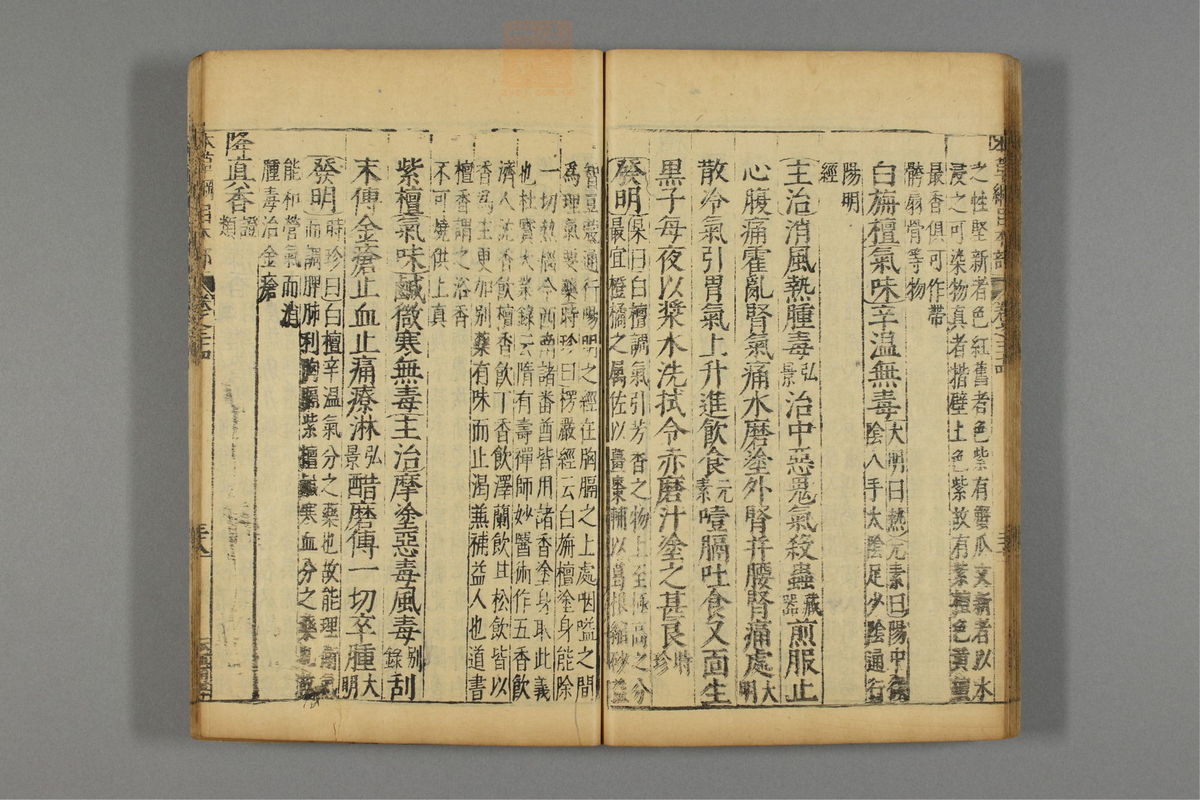 之性堅新者色紅舊者色紫有蟹爪文新者以水
浸之可染物真者揩壁上色紫故有紫檀色黃檀
最香俱可作帶
骻扇骨等物
白旃檀氣味辛溫無毒大明曰熱元素曰陽中微
陰入手太陰足少陰通行
陽明
經
主治消風熱腫毒弘景治中惡鬼氣殺蟲藏器煎服止
心腹痛霍亂腎氣痛水磨塗外腎并腰腎痛處大明
散冷氣引胃氣上升進飲食元素噎膈吐食又面生
黑子每夜以漿水洗拭令赤磨汁塗之甚良時珍
發明杲曰白檀調氣引芳香之物上至極高之分
最宜橙橘之屬佐以薑棗輔以葛根縮砂益
智豆蔻通行陽明之經在胸膈之上處咽嗌之間
為理氣要藥時珍曰楞嚴經云白旃檀塗身能除
一切熱惱今西南諸番酋皆用諸香塗身取此義
也杜寶大業錄云隋有壽禪師妙醫術作五香飲
濟人沈香飲檀香飲丁香飲澤蘭飲甘松飲皆以
香為主更加別藥有味而止渴兼補益人也道書
檀香謂之浴香
不可燒供上真
紫檀氣味鹹微寒無毒主治摩塗惡毒風毒別錄刮
末傅金瘡止血止痛療淋弘景醋磨傅一切卒腫大明
發明時珍曰白檀辛溫氣分之藥也故能理衛氣
而調脾肺利胸膈紫檀鹹寒血分之藥也故
能和營氣而消
腫毒治金瘡
降真香證類